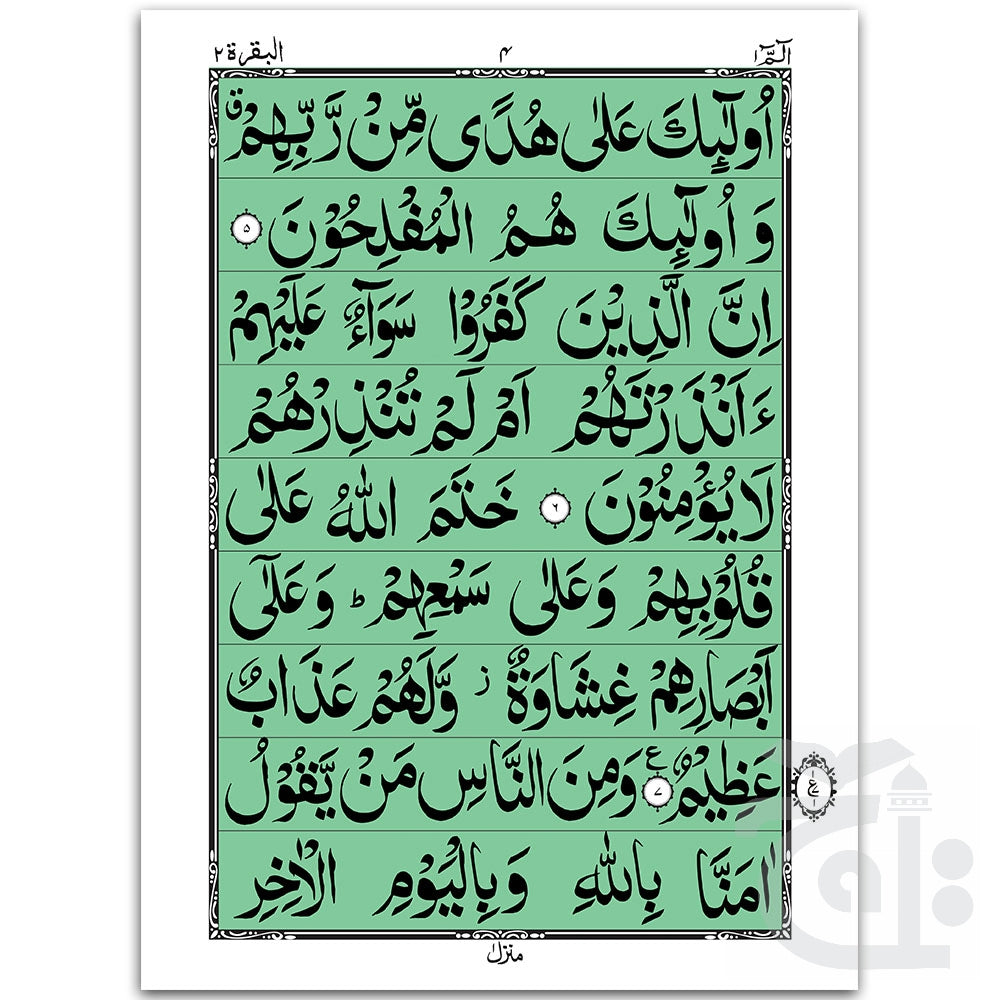 الٓمّٓ ۱ ۴ البقرة ۲
اُولٰٓئِكَ عَلٰى هُدًى مِّنْ رَّبِّهِمْ ق
وَ اُولٰٓئِكَ هُمُ الْمُفْلِحُوْنَ ۵
اِنَّ الَّذِيْنَ كَفَرُوْا سَوَآءٌ عَلَيْهِمْ
ءَاَنْذَرْتَهُمْ اَمْ لَمْ تُنْذِرْهُمْ
لَا يُؤْمِنُوْنَ ۶ خَتَمَ اللّٰهُ عَلٰى
قُلُوْبِهِمْ وَعَلٰى سَمْعِهِمْ ط وَعَلٰٓى
اَبْصَارِهِمْ غِشَاوَةٌ ز وَّلَهُمْ عَذَابٌ
عَظِيْمٌ ۷ ع وَمِنَ النَّاسِ مَنْ يَّقُوْلُ
اٰمَنَّا بِاللّٰهِ وَبِالْيَوْمِ الْاٰخِرِ
منزل ۱